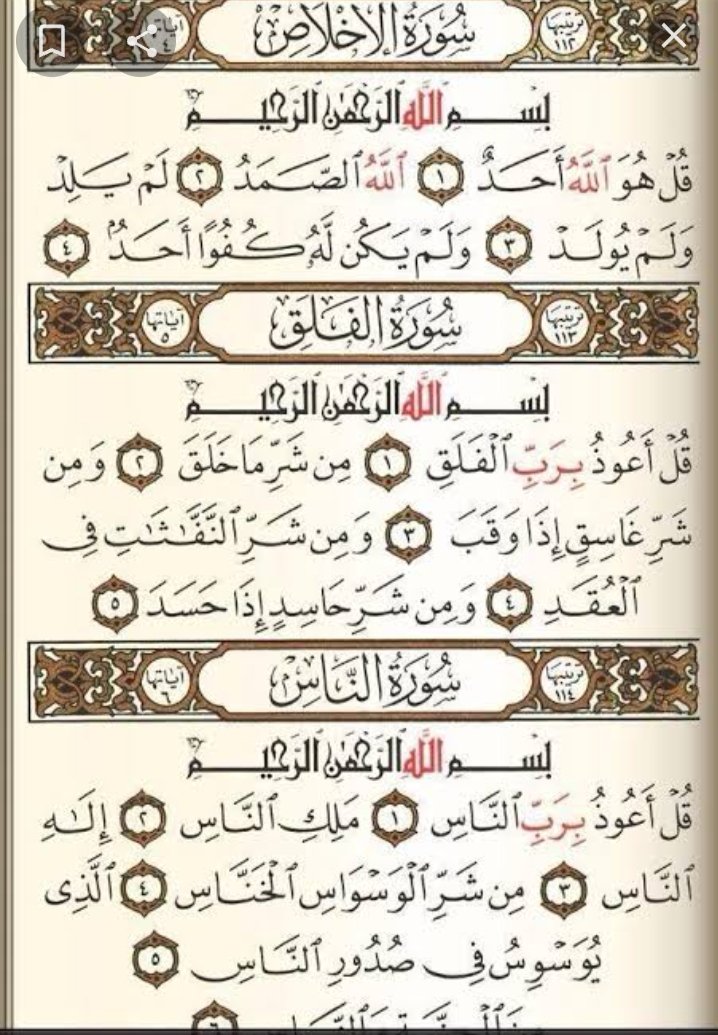 ترتيبها ١١٢ سورة الإخلاص آياتها ٤
بِسۡمِ ٱللَّهِ ٱلرَّحۡمَٰنِ ٱلرَّحِيمِ
قُلۡ هُوَ ٱللَّهُ أَحَدٌ ١ ٱللَّهُ ٱلصَّمَدُ ٢ لَمۡ يَلِدۡ
وَلَمۡ يُولَدۡ ٣ وَلَمۡ يَكُن لَّهُۥ كُفُوًا أَحَدُۢ ٤
ترتيبها ١١٣ سُورَةُ الفَلَقِ آياتها ٥
بِسۡمِ ٱللَّهِ ٱلرَّحۡمَٰنِ ٱلرَّحِيمِ
قُلۡ أَعُوذُ بِرَبِّ ٱلۡفَلَقِ ١ مِن شَرِّ مَا خَلَقَ ٢ وَمِن
شَرِّ غَاسِقٍ إِذَا وَقَبَ ٣ وَمِن شَرِّ ٱلنَّفَّٰثَٰتِ فِي
ٱلۡعُقَدِ ٤ وَمِن شَرِّ حَاسِدٍ إِذَا حَسَدَ ٥
ترتيبها ١١٤ سُورَةُ النَّاسِ آياتها ٦
بِسۡمِ ٱللَّهِ ٱلرَّحۡمَٰنِ ٱلرَّحِيمِ
قُلۡ أَعُوذُ بِرَبِّ ٱلنَّاسِ ١ مَلِكِ ٱلنَّاسِ ٢ إِلَٰهِ
ٱلنَّاسِ ٣ مِن شَرِّ ٱلۡوَسۡوَاسِ ٱلۡخَنَّاسِ ٤ ٱلَّذِي
يُوَسۡوِسُ فِي صُدُورِ ٱلنَّاسِ ٥